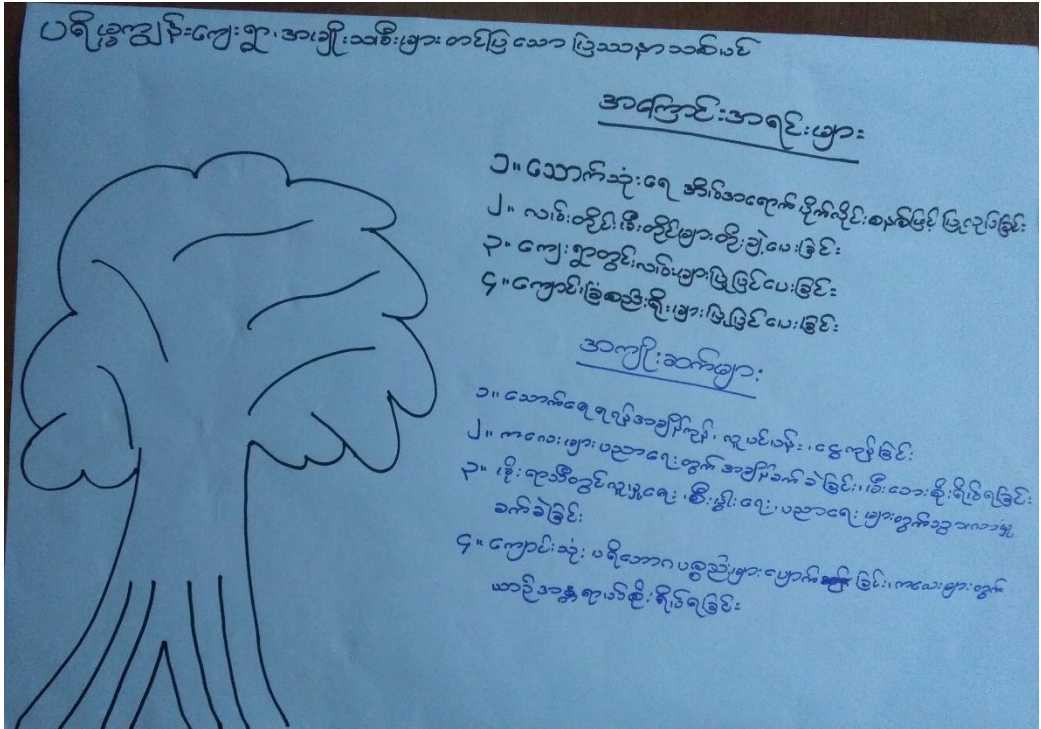 ပရိမ္မကျွန်းကျေးရွာ၊ အမျိုးသမီးများ တင်ပြသော ပြဿနာသစ်ပင်
အကြောင်းအရင်းများ
၁။ သောက်သုံးရေ အိမ်အရောက် ပိုက်လိုင်းစနစ်ဖြင့် ပြုလုပ်ခြင်း
၂။ လမ်းတိုင်၊ မီးတိုင်များတိုးချဲ့ပေးခြင်း
၃။ ကျေးရွာတွင်းလမ်းများပြုပြင်ပေးခြင်း
၄။ ကျောင်းခြံစည်းရိုးများပြုပြင်ပေးခြင်း
အကျိုးဆက်များ
၁။ သောက်ရေရရန်အချိန်ကုန်၊ လူပင်ပန်း၊ ငွေကုန်ခြင်း
၂။ ကလေးများပညာရေးတွက် အချိန်ခက်ခဲခြင်း၊ မီးဘေးစိုးရိမ်ရခြင်း
၃။ မိုးရာသီတွင်လူမှုရေး၊ စီးပွါးရေး၊ ပညာရေးများတွက်သွားလာမှု
ခက်ခဲခြင်း
၄။ ကျောင်းသုံး ပရိဘောဂပစ္စည်းများပျောက် ခြင်း၊ ကလေးများတွက်
ယာဉ်အန္တရာယ်စိုးရိမ်ရခြင်း